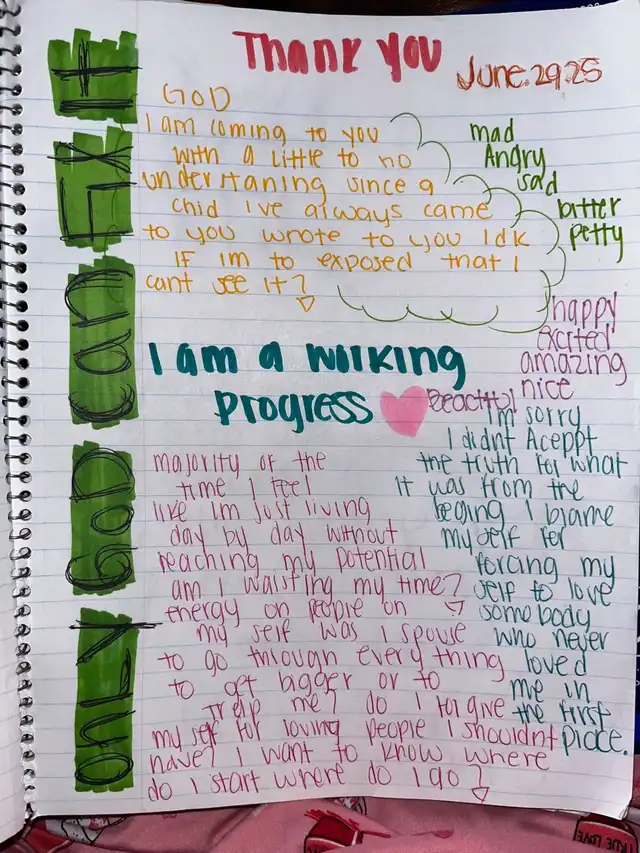 Thank you
June.29.25
GOD
I am coming to you
with a little to no
understaning since a
chid I've always came
to you wrote to you Idk
IF im to exposed that I
cant see it?
mad
Angry
sad
bitter
petty
happy
excited
amazing
nice
I am a working
progress
majority of the
time I feel
like im just living
day by day without
reaching my potential
am I waisting my time?
energy on people on
my self was I spouse
to go through every thing
to get bigger or to
trap me? do I forgive
my self for loving people I shouldnt
have? I want to know where
do I start where do I go?
I'm sorry
I didnt Aceppt
the truth for what
it was from the
beging I blame
my self for
forcing my
self to love
somebody
who never
loved
me in
the first
place.
ONLY
GOD
FIX
IT